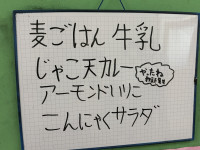 麦ごはん 牛乳
じゃこ天カレー
やったね
アーモンドいりこ
こんにゃくサラダ